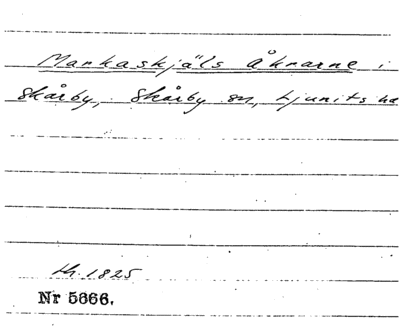 Markaskjäls Åkrarne i
Skårby, Skårby sn, Ljunits hd
th. 1825
Nr 5666.